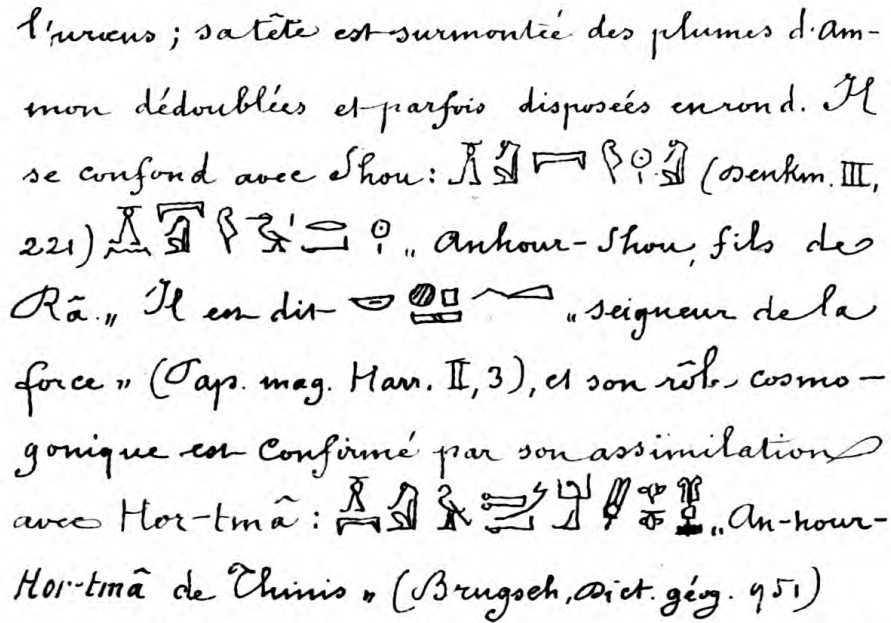 l'uræus ; sa tête est surmontée des plumes d'Am-
mon dédoublées et parfois disposées en rond. Il
se confond avec Shou : (Denkm. III,
221) „ Anhour-Shou, fils de
Râ „ Il est dit „ seigneur de la
force „ (Pap. mag. Harr. II, 3), et son rôle cosmo-
gonique est confirmé par son assimilation
avec Hor-tmâ : „ An-hour-
Hor-tmâ de Thinis „ (Brugsch, Dict. géog. 951)